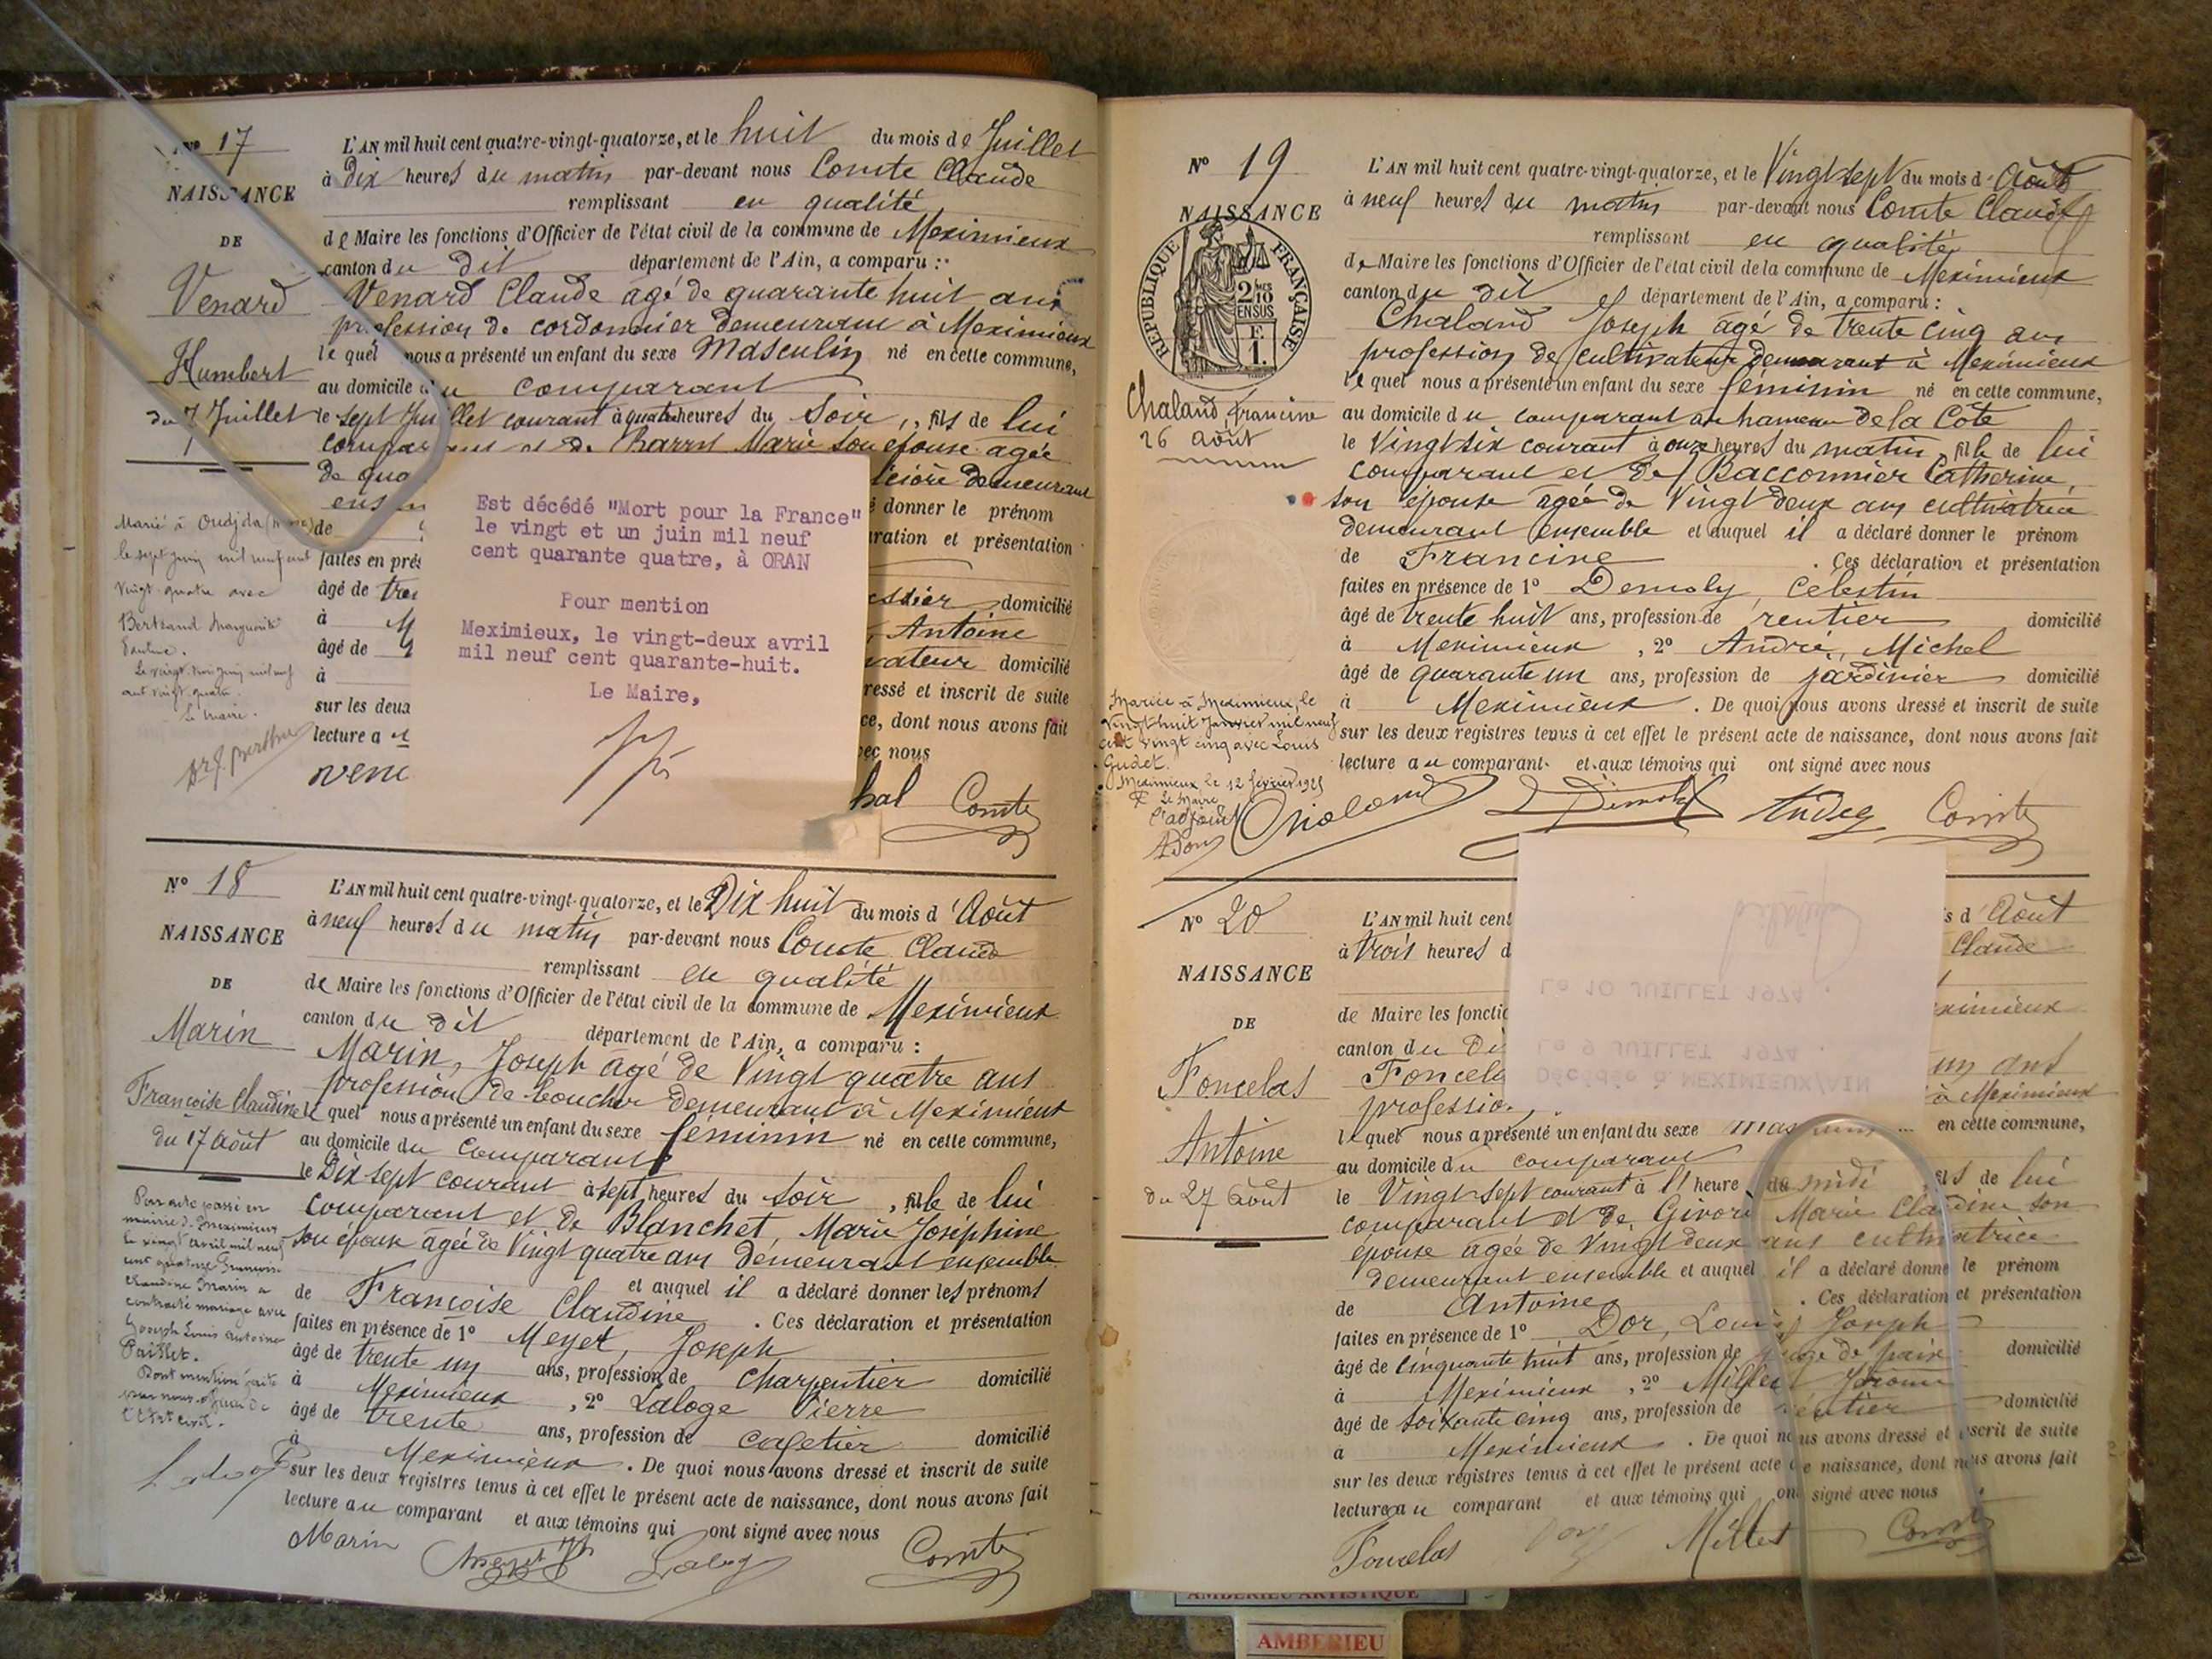 Nº 17
NAISSANCE
DE
Venard
Humbert
du 7 Juillet
L'AN mil huit cent quatre-vingt-quatorze, et le huit du mois de Juillet
à Dix heures du matin par-devant nous Comte Claude
remplissant en qualité
de Maire les fonctions d'Officier de l'état civil de la commune de Meximieux
canton du dit département de l'Ain, a comparu :
Venard Claude agé de quarante huit ans
profession de cordonnier demeurant à Meximieux
lequel nous a présenté un enfant du sexe Masculin né en cette commune,
au domicile du comparant
le sept Juillet courant à quatre heures du Soir, fils de lui
comparant et de Barru Marie son épouse agée
de qua
demeurant
ens
de
é donner le prénom
ration et présentation
faites en prés
âgé de tren
essier domicilié
à M
Antoine
âgé de
vateur domicilié
à
ressé et inscrit de suite
sur les deux
ce, dont nous avons fait
lecture a
vec nous
vena
hal Comte
Est décédé "Mort pour la France"
le vingt et un juin mil neuf
cent quarante quatre, à ORAN
Pour mention
Meximieux, le vingt-deux avril
mil neuf cent quarante-huit.
Le Maire,
Marié à Oudjda (Maroc)
le sept Juin mil neuf cent
vingt quatre avec
Bertrand Marguerite
Pauline.
Le vingt trois Juin mil neuf
cent vingt quatre.
Le Maire.
Nº 18
NAISSANCE
DE
Marin
Françoise Claudine
du 17 Août
L'AN mil huit cent quatre-vingt-quatorze, et le Dix huit du mois d'Août
à neuf heures du matin par-devant nous Comte Claude
remplissant en qualité
de Maire les fonctions d'Officier de l'état civil de la commune de Meximieux
canton du dit département de l'Ain, a comparu :
Marin, Joseph agé de Vingt quatre ans
profession de boucher demeurant à Meximieux
lequel nous a présenté un enfant du sexe féminin né en cette commune,
au domicile du comparant
le Dix sept courant à sept heures du soir, fille de lui
comparant et de Blanchet, Marie Joséphine
son épouse agée de Vingt quatre ans demeurant ensemble
et auquel il a déclaré donner les prénoms
de Françoise Claudine. Ces déclaration et présentation
faites en présence de 1º Meyet, Joseph
âgé de trente un ans, profession de Charpentier domicilié
à Meximieux, 2º Laloge Pierre
âgé de trente ans, profession de cafetier domicilié
à Meximieux. De quoi nous avons dressé et inscrit de suite
sur les deux registres tenus à cet effet le présent acte de naissance, dont nous avons fait
lecture au comparant et aux témoins qui ont signé avec nous
Marin Meyet Jh Laloge Comte
Par acte passé en
mairie de Meximieux
le vingt avril mil neuf
cent quatorze Françoise
Claudine Marin a
contracté mariage avec
Joseph Louis Antoine
Paillet.
Dont mention faite
par nous officier de
l'Etat civil.
Nº 19
NAISSANCE
RÉPUBLIQUE FRANÇAISE
2 mes
10
EN SUS
F.
1.
Chaland Francine
26 août
L'AN mil huit cent quatre-vingt-quatorze, et le Vingt sept du mois d'Août
à neuf heures du matin par-devant nous Comte Claude
remplissant en qualité
de Maire les fonctions d'Officier de l'état civil de la commune de Meximieux
canton du dit département de l'Ain, a comparu :
Chaland Joseph agé de trente cinq ans
profession de cultivateur demeurant à Meximieux
lequel nous a présenté un enfant du sexe féminin né en cette commune,
au domicile du comparant au hameau de la Côte
le Vingt six courant à onze heures du matin, fille de lui
comparant et de Bacconnier Catherine,
son épouse agée de Vingt deux ans cultivatrice
demeurant ensemble et auquel il a déclaré donner le prénom
de Francine. Ces déclaration et présentation
faites en présence de 1º Demoly, Célestin
âgé de trente huit ans, profession de rentier domicilié
à Meximieux, 2º André, Michel
âgé de quarante un ans, profession de jardinier domicilié
à Meximieux. De quoi nous avons dressé et inscrit de suite
sur les deux registres tenus à cet effet le présent acte de naissance, dont nous avons fait
lecture au comparant et aux témoins qui ont signé avec nous
Chaland Demoly Andre Comte
Mariée à Meximieux, le
vingt huit Janvier mil neuf
cent vingt cinq avec Louis
Gudet.
Meximieux le 12 février 1925
Le Maire,
l'adjoint
Nº 20
NAISSANCE
DE
Foncelas
Antoine
du 27 Août
L'AN mil huit cent
s d'Août
à trois heures d
Claude
de Maire les fonctio
eximieux
canton du di
Foncela
un ans
professio
à Meximieux
lequel nous a présenté un enfant du sexe mas en cette commune,
au domicile du comparant
le Vingt sept courant à 11 heure du midi, fils de lui
comparant et de Givord Marie Claudine son
épouse agée de Vingt deux ans cultivatrice
demeurant ensemble et auquel il a déclaré donner le prénom
de Antoine. Ces déclaration et présentation
faites en présence de 1º Dor, Louis Joseph
âgé de cinquante huit ans, profession de juge de paix domicilié
à Meximieux, 2º Millet Jérome
âgé de soixante cinq ans, profession de rentier domicilié
à Meximieux. De quoi nous avons dressé et inscrit de suite
sur les deux registres tenus à cet effet le présent acte de naissance, dont nous avons fait
lecture au comparant et aux témoins qui ont signé avec nous
Foncelas Dor Millet Comte
Décédée à MEXIMIEUX/AIN
Le 9 JUILLET 1974.
Le 10 JUILLET 1974.
AMBERIEU ARTISTIQUE
AMBERIEU